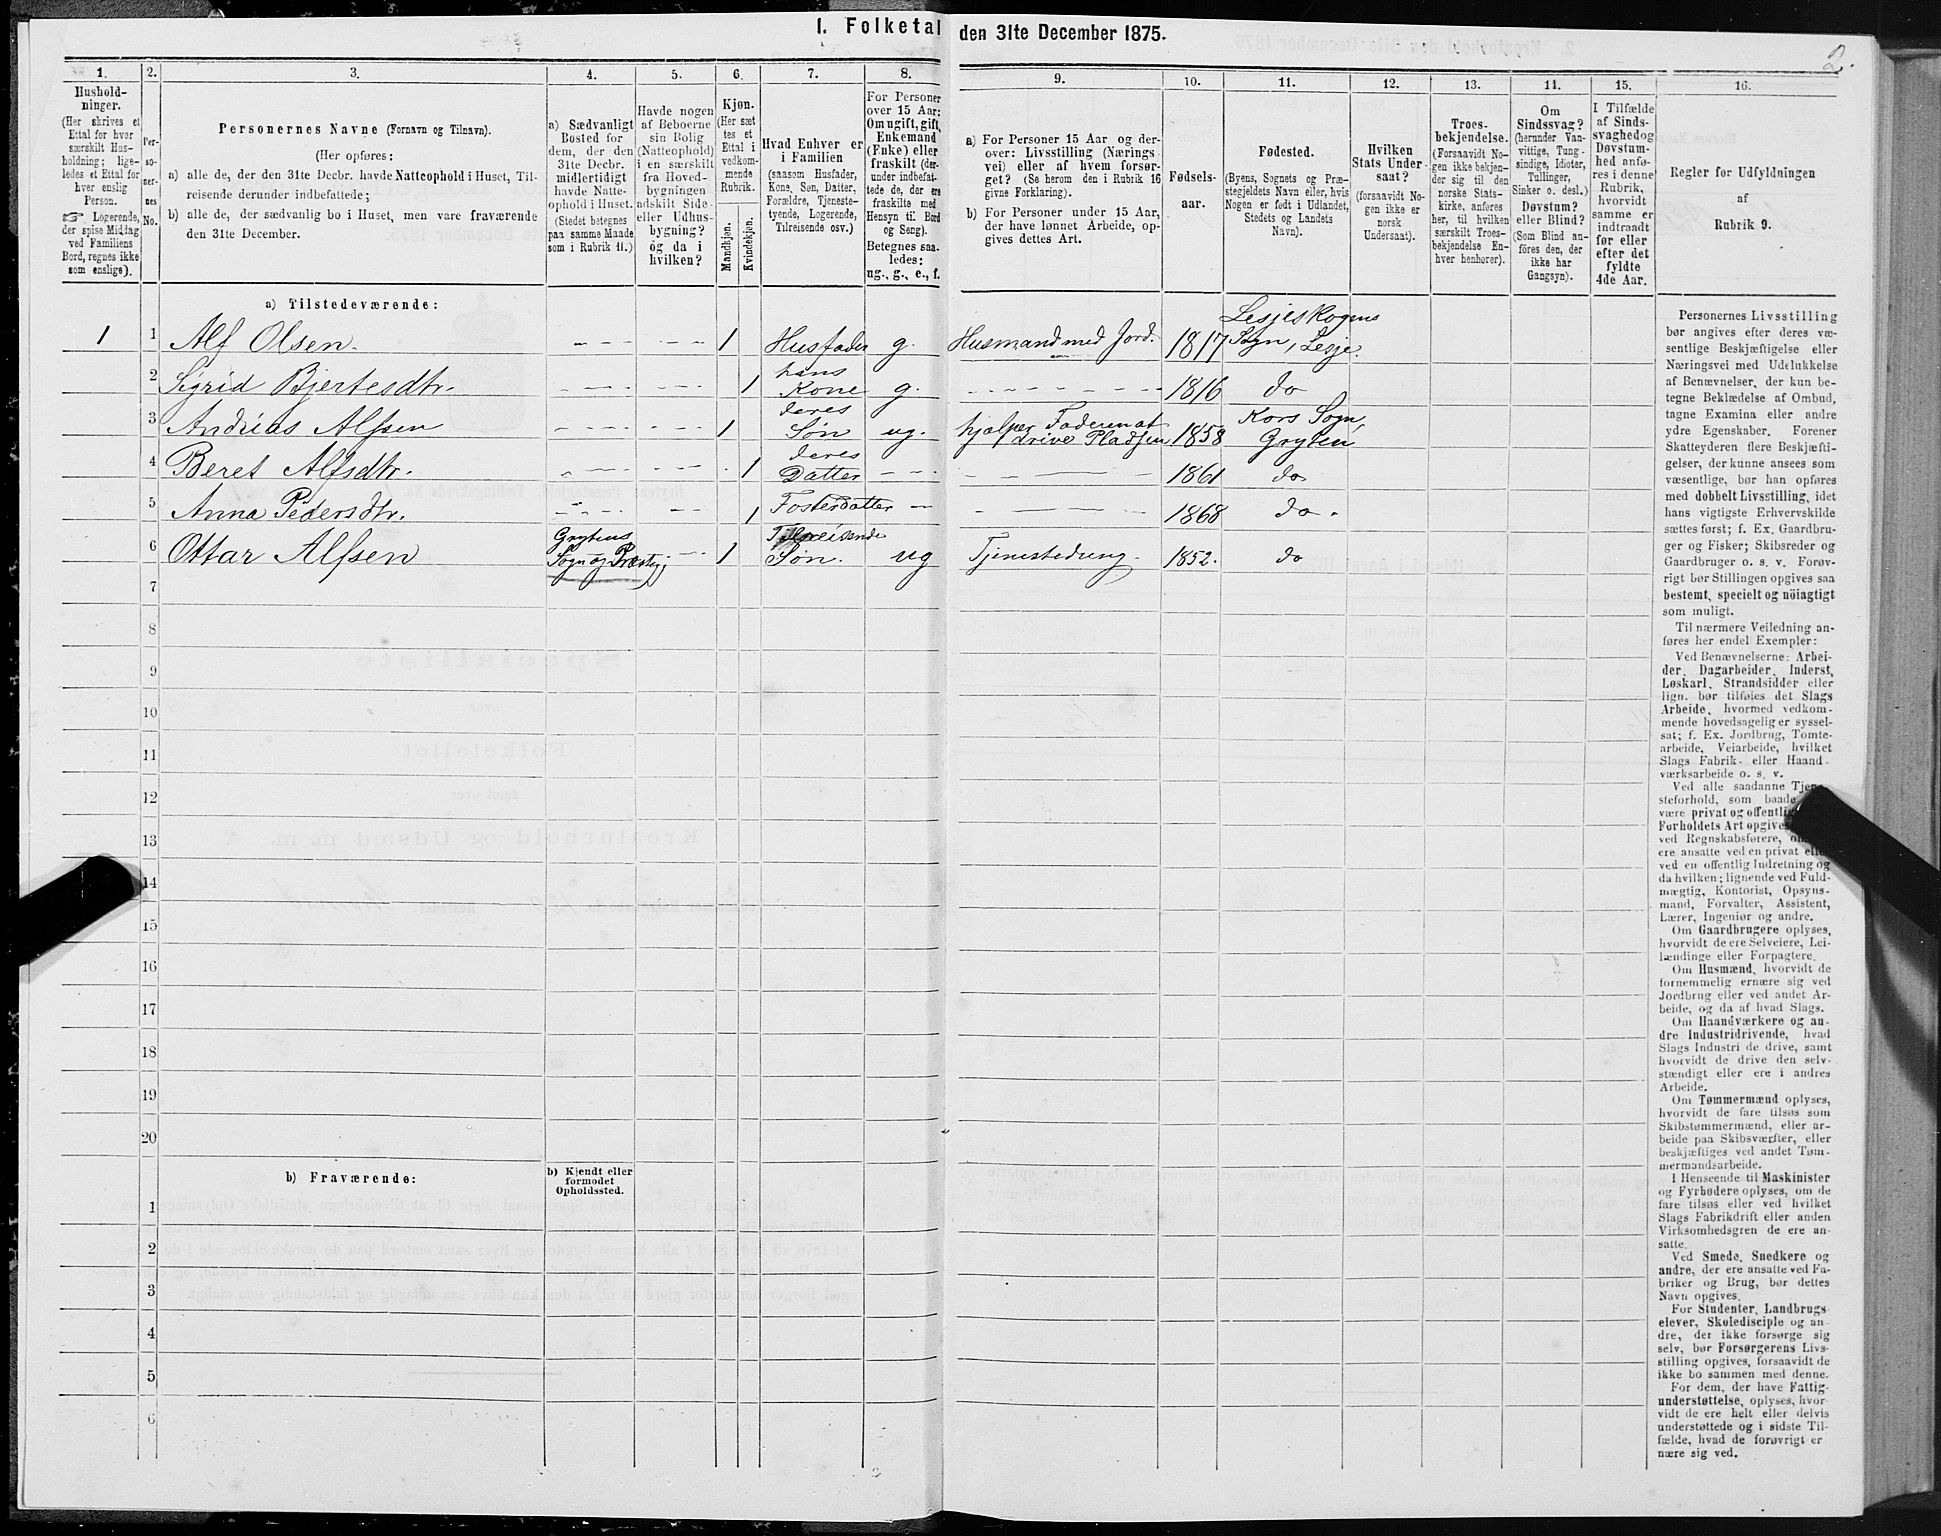 I. Folketal den 31te December 1875.
2.
1.
Hushold-
ninger.
(Her skrives et
Ettal for hver
særskilt Hus-
holdning; lige-
ledes et Ettal for
hver enslig
Person.
☞ Logerende,
der spise Middag
ved Familiens
Bord, regnes ikke
som enslige).
2.
Per-
so-
ner-
nes
No.
3.
Personernes Navne (Fornavn og Tilnavn).
(Her opføres:
a) alle de, der den 31te Decbr. havde Natteophold i Huset, Til-
reisende derunder indbefattede;
b) alle de, der sædvanlig bo i Huset, men vare fraværende
den 31te December.
4.
a) Sædvanligt
Bosted for
dem, der den
31te Decbr.
midlertidigt
havde Natte-
ophold i Huset.
(Stedet betegnes
paa samme Maade
som i Rubrik 11.)
5.
Havde nogen
af Beboerne
sin Bolig
(Natteophold)
i en særskilt
fra Hoved-
bygningen
adskilt Side-
eller Udhus-
bygning?
og da i
hvilken?
6.
Kjøn.
(Her sæt
tes et
Ettal i
vedkom-
mende
Rubrik.
Mandkjøn.
Kvindekjøn.
7.
Hvad Enhver er
i Familien
(saasom Husfader,
Kone, Søn, Datter,
Forældre, Tjeneste-
tyende, Logerende,
Tilreisende osv.)
8.
For Personer
over 15 Aar:
Om ugift, gift,
Enkemand
(Enke) eller
fraskilt (der-
under indbefat-
tede de, der ere
fraskilte med
Hensyn til Bord
og Seng).
Betegnes saa-
ledes:
ug., g., e., f.
9.
a) For Personer 15 Aar og der-
over: Livsstilling (Nærings
vei) eller af hvem forsør-
get? (Se herom den i Rubrik 16
givne Forklaring).
b) For Personer under 15 Aar,
der have lønnet Arbeide, op-
gives dettes Art.
10.
Fødsels-
aar.
11.
Fødested.
(Byens, Sognets og Præ-
stegjeldets Navn eller, hvis
Nogen er født i Udlandet,
Stedets og Landets
Navn).
12.
Hvilken
Stats Under-
saat?
(forsaavidt No-
gen ikke er
norsk
Undersaat).
13.
Troes-
bekjendelse.
(Forsaavidt No-
gen ikke bekjen-
der sig til den
norske Stats-
kirke, anføres
her, til hvilken
særskilt Troes-
bekjendelse En-
hver henhører).
14.
Om
Sindssvag?
(herunder Van-
vittige, Tung-
sindige, Idioter,
Tullinger,
Sinker o. desl.)
Døvstum?
eller Blind?
(Som Blind an-
føres den, der
ikke har
Gangsyn).
15.
I Tilfælde
af Sinds-
svaghed og
Døvstum-
hed anfø-
res i denne
Rubrik,
hvorvidt
samme er
indtraadt
før eller
efter det
fyldte
4de Aar.
16.
Regler for Udfyldningen
af
Rubrik 9.
a) Tilstedeværende:
1 1 Alf Olsen. 1 Husfader g. Husmand med Jord. 1817 Lesjeskogens
Sogn, Lesje.
2 Sigrid Bjertesdtr. 1 hans
Kone g. 1816 do
3 Andreas Alfsen 1 deres
Søn ug. hjælper Faderen at
drive Pladsen 1858 Kors Sogn,
Gryten
4 Beret Alfsdtr. 1 deres
Datter 1861 do
5 Anna Pedersdtr. 1 Fosterdatter 1868 do
6 Ottar Alfsen Grytens
Sogn og Præstegj. 1 Tilreisende
Søn. ug Tjenestedreng. 1852. do
7
8
9
10
11
12
13
14
15
16
17
18
19
20
b) Fraværende:
b) Kjendt eller
formodet
Opholdssted.
1
2
3
4
5
6
Personernes Livsstilling
bør angives efter deres væ-
sentlige Beskjæftigelse eller
Næringsvei med Udelukkelse
af Benævnelser, der kun be-
tegne Beklædelse af Ombud,
tagne Examina eller andre
ydre Egenskaber. Forener
Skatteyderen flere Beskjæfti-
gelser, der kunne ansees som
væsentlige, bør han opføres
med dobbelt Livsstilling, idet
hans vigtigste Erhvervskilde
sættes først; f. Ex. Gaardbru-
ger og Fisker; Skibsreder og
Gaardbruger o. s. v. Forøv-
rigt bør Stillingen opgives saa
bestemt, specielt og nöiagtigt
som muligt.
Til nærmere Veiledning an-
føres her endel Exempler:
Ved Benævnelserne: Arbei-
der, Dagarbeider, Inderst,
Løskarl, Strandsidder eller
lign. bør tilføies det Slags
Arbeide, hvormed vedkom-
mende hovedsagelig er syssel-
sat; f. Ex. Jordbrug, Tomte-
arbeide, Veiarbeide, hvilket
Slags Fabrik- eller Haand-
værksarbeide o. s. v.
Ved alle saadanne Tjene-
steforhold, som baade
være privat og offentlig
Forholdets Art opgives
ved Regnskabsførere,
ere ansatte ved en privat eller
ved en offentlig Indretning og
da hvilken; lignende ved Fuld-
mægtig, Kontorist, Opsyns-
mand, Forvalter, Assistent,
Lærer, Ingeniør og andre.
Om Gaardbrugere oplyses,
hvorvidt de ere Selveiere, Lei-
lændinge eller Forpagtere.
Om Husmænd, hvorvidt de
fornemmelig ernære sig ved
Jordbrug eller ved andet Ar-
beide, og da af hvad Slags.
Om Haandværkere og an-
dre Industridrivende, hvad
Slags Industri de drive, samt
hvorvidt de drive den selv-
stændigt eller ere i andres
Arbeide.
Om Tømmermænd oplyses,
hvorvidt de fare tilsøs som
Skibstømmermænd, eller ar-
beide paa Skibsværfter, eller
beskjæftiges ved andet Tøm-
mermandsarbeide.
I Henseende til Maskinister
og Fyrbødere oplyses, om de
fare tilsøs eller ved hvilket
Slags Fabrikdrift eller anden
Virksomhedsgren de ere an-
satte.
Ved Smede, Snedkere og
andre, der ere ansatte ved Fa-
briker og Brug, bør dettes
Navn opgives.
For Studenter, Landbrugs-
elever, Skoledisciple og an-
dre, der ikke forsørge sig
selv, bør Forsørgerens Livs-
stilling opgives, forsaavidt de
ikke bo sammen med denne.
For dem, der have Fattig-
understøttelse, oplyses, hvor-
vidt de ere helt eller delvis
understøttede og i sidste Til-
fælde, hvad de forøvrigt er
nære sig ved.